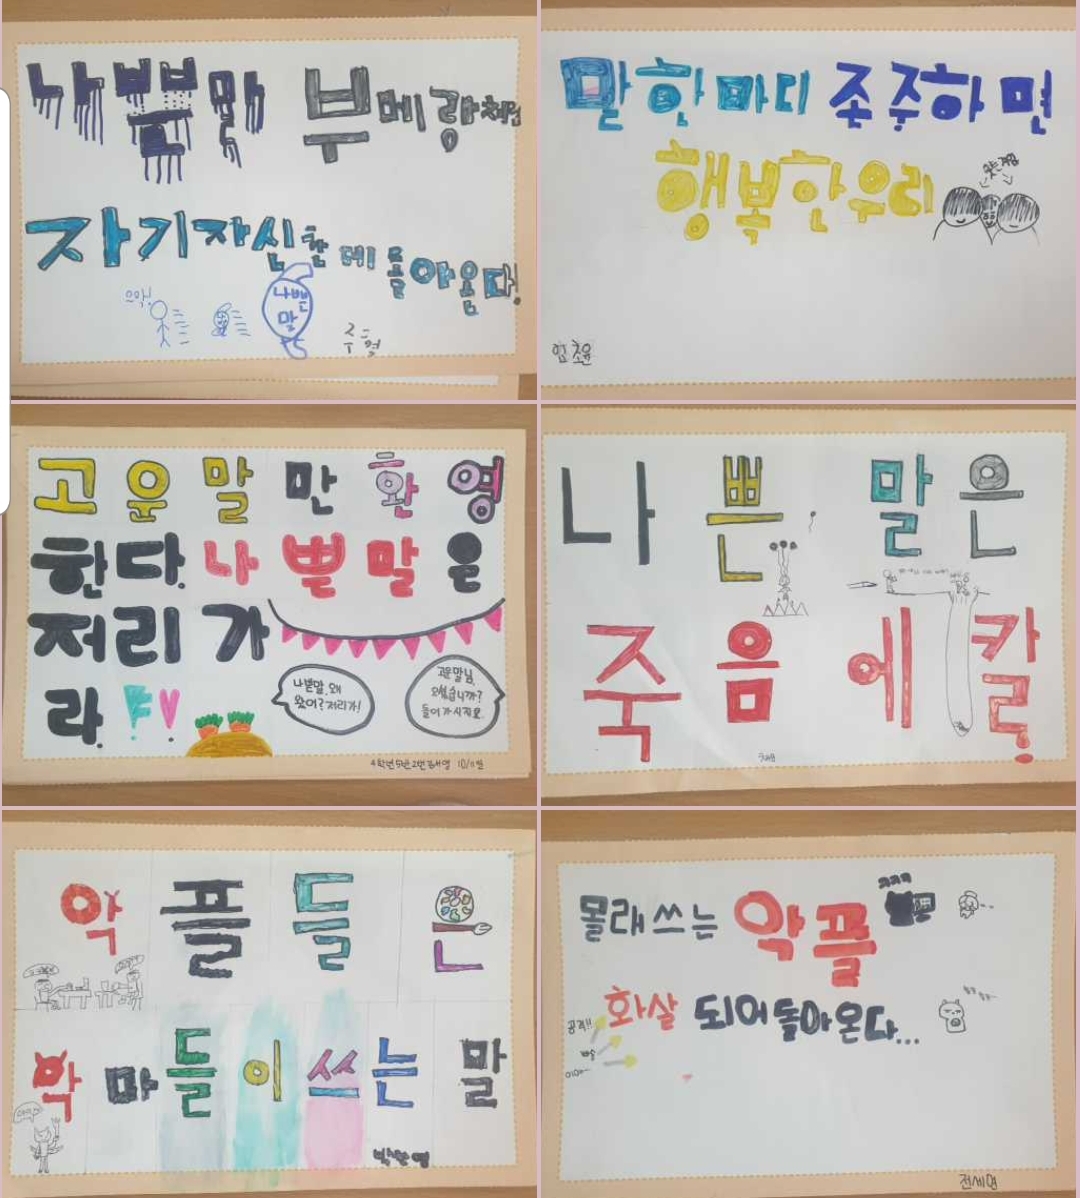 나쁜말 부메랑처럼
자기자신한테 돌아온다!
으악!
나쁜
말
말한마디 조주하면
행복한우리
임초윤
고운말만환영
한다. 나쁜말은
저리가
라.
나쁜말, 왜
왔어? 저리가!
고운말님
오셨습니까?
들어가시지요.
나쁜 말은
죽음에 칼
악플들은
악마들이 쓰는 말
몰래쓰는 악플
ㅋㅋㅋ
화살 되어돌아온다...
공격!!
전세영